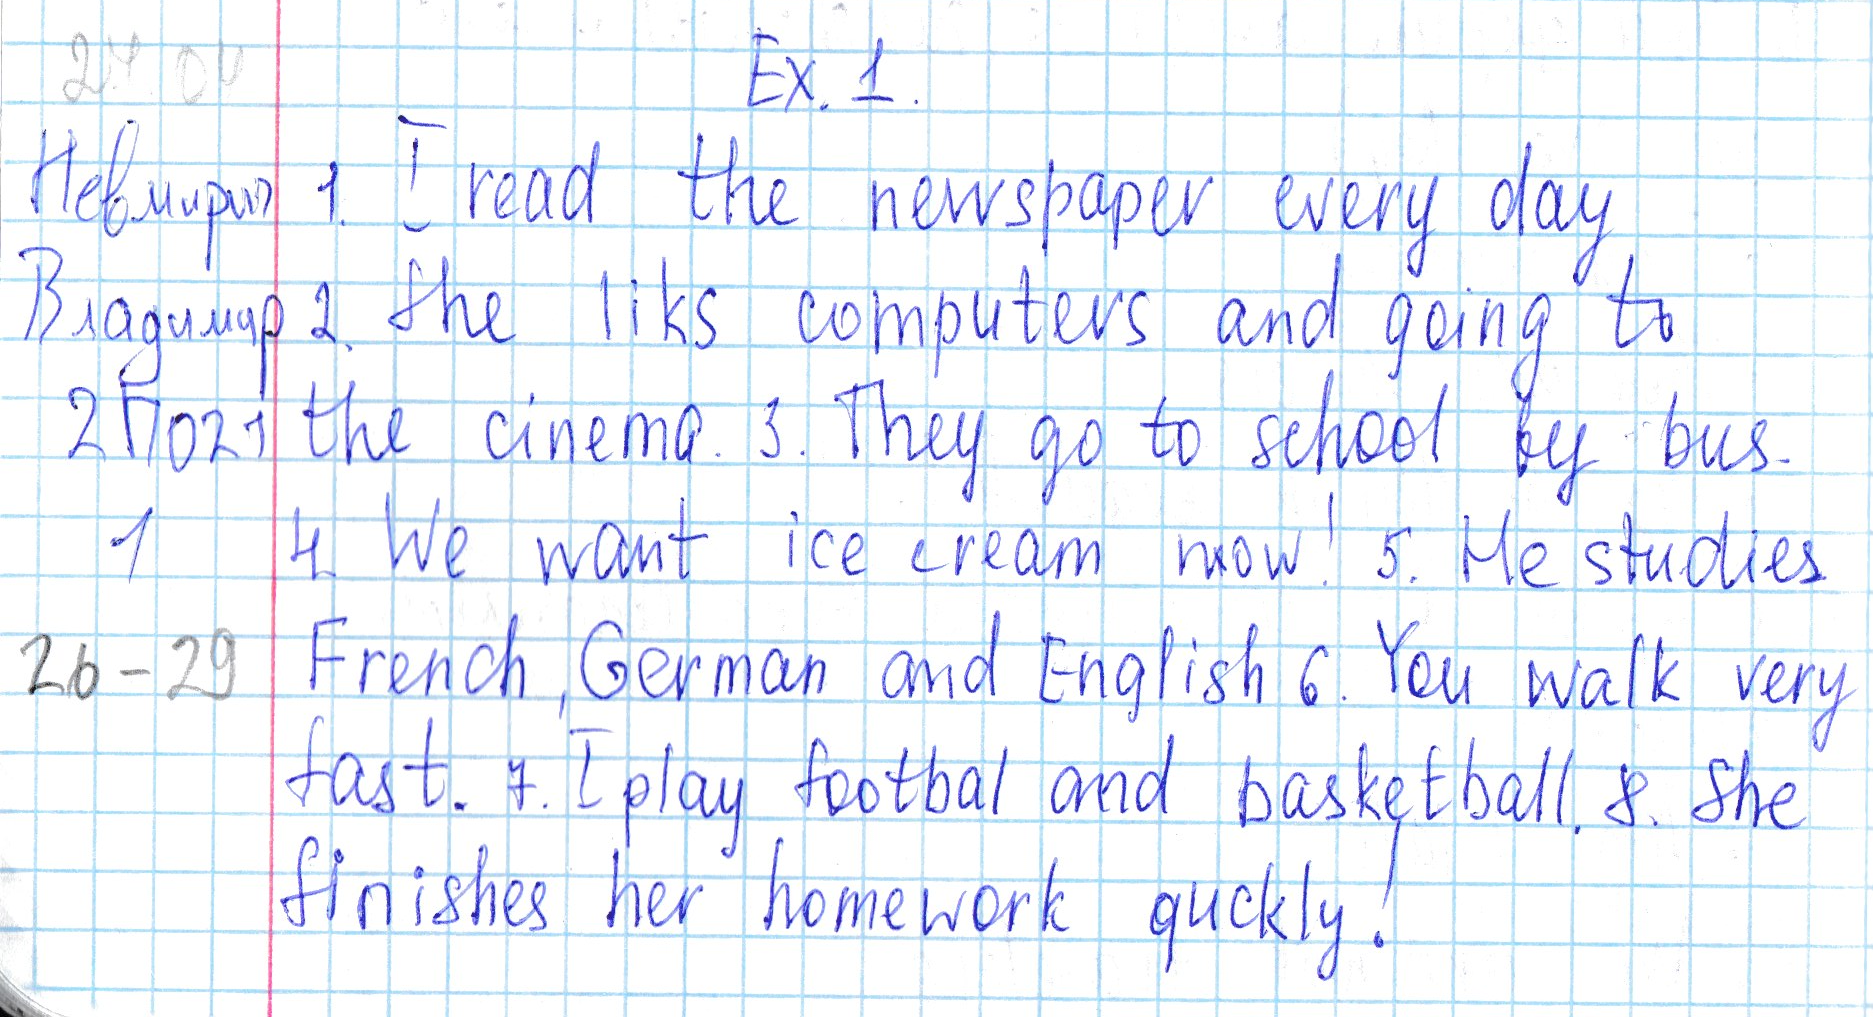 24.04
Ex. 1.
Невмирич 1. I read the newspaper every day
Владимир 2. She liks computers and going to
2П021 the cinema. 3. They go to school by bus.
1 4. We want ice cream now! 5. He studies
26-29 French, German and English 6. You walk very
fast. 7. I play footbal and basketball. 8. She
finishes her homework quckly!